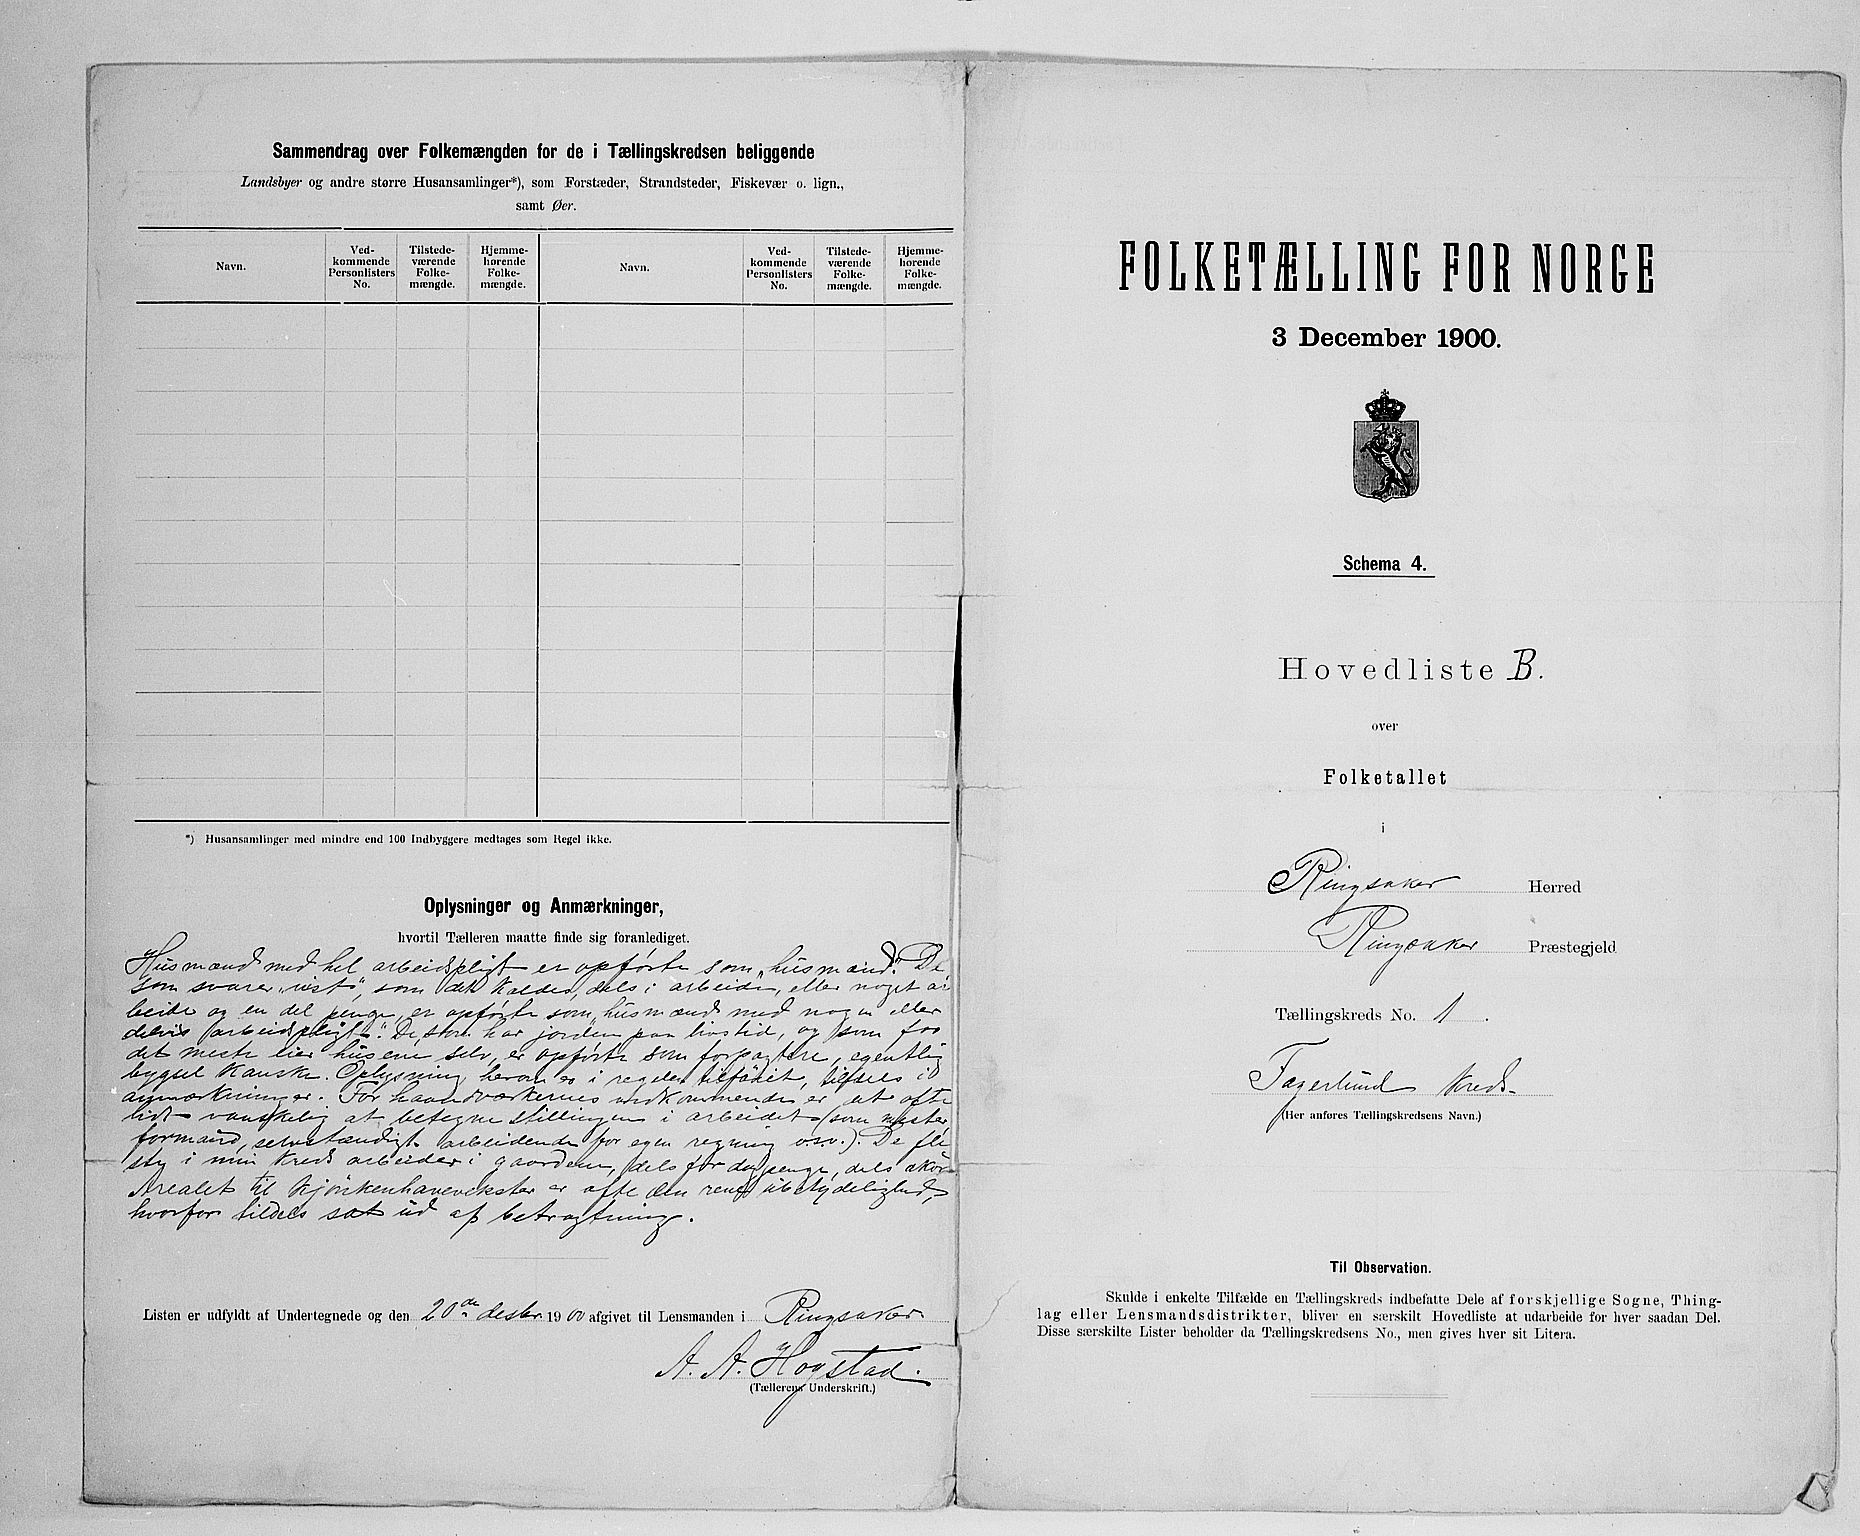 Sammendrag over Folkemængden for de i Tællingskredsen beliggende
Landsbyer og andre større Husansamlinger*), som Forstæder, Strandsteder, Fiskevær o. lign.,
samt Øer.
Navn.
Ved-
kommende
Personlisters
No.
Tilstede-
værende
Folke-
mængde.
Hjemme-
hørende
Folke-
mængde.
Navn.
Ved-
kommende
Personlisters
No.
Tilstede-
værende
Folke-
mængde.
Hjemme-
hørende
Folke-
mængde.
*) Husansamlinger med mindre end 100 Indbyggere medtages som Regel ikke.
Oplysninger og Anmærkninger,
hvortil Tælleren maatte finde sig foranlediget.
Husmænd med hel arbeidspligt er opførte som „husmænd”. De,
som svarer som det kaldes, dels i arbeide, eller noget ar
beide og en del penge, er opførte som „husmænd med nogen eller
delvis arbeidspligt”. De, som har jorden paa livstid, og som for
det meste eier husene selv, er opførte som forpagtere, egentlig
bygsel kanske. Oplysning herom es i regelen tilføiet, tildels i
anmærkninger. For haandværkernes vedkommende er det ofte
lidt vanskelig at betegne stillingen i arbeidet (som mester,
formand, selvstændigt arbeidende for egen regning o.s.v.). De fle
ste i min kreds arbeider i gaardene, dels for dagpenge, dels akor
Arealet til kjøkkenhavevekster er ofte den rene ubetydelighed,
hvorfor tildels sat ud af betragtning.
Listen er udfyldt af Undertegnede og den 20de desbr. 1900 afgivet til Lensmanden i Ringsaker
A. A. Hogstad.
(Tællerens Underskrift.)
FOLKETÆLLING FOR NORGE
3 December 1900.
Schema 4.
Hovedliste B.
over
Folketallet
i
Ringsaker Herred
Ringsaker Præstegjeld
Tællingskreds No. 1.
Fagerlund kreds.
(Her anføres Tællingskredsens Navn.)
Til Observation.
Skulde i enkelte Tilfælde en Tællingskreds indbefatte Dele af forskjellige Sogne, Thing-
lag eller Lensmandsdistrikter, bliver en særskilt Hovedliste at udarbeide for hver saadan Del.
Disse særskilte Lister beholder da Tællingskredsens No., men gives hver sit Litera.